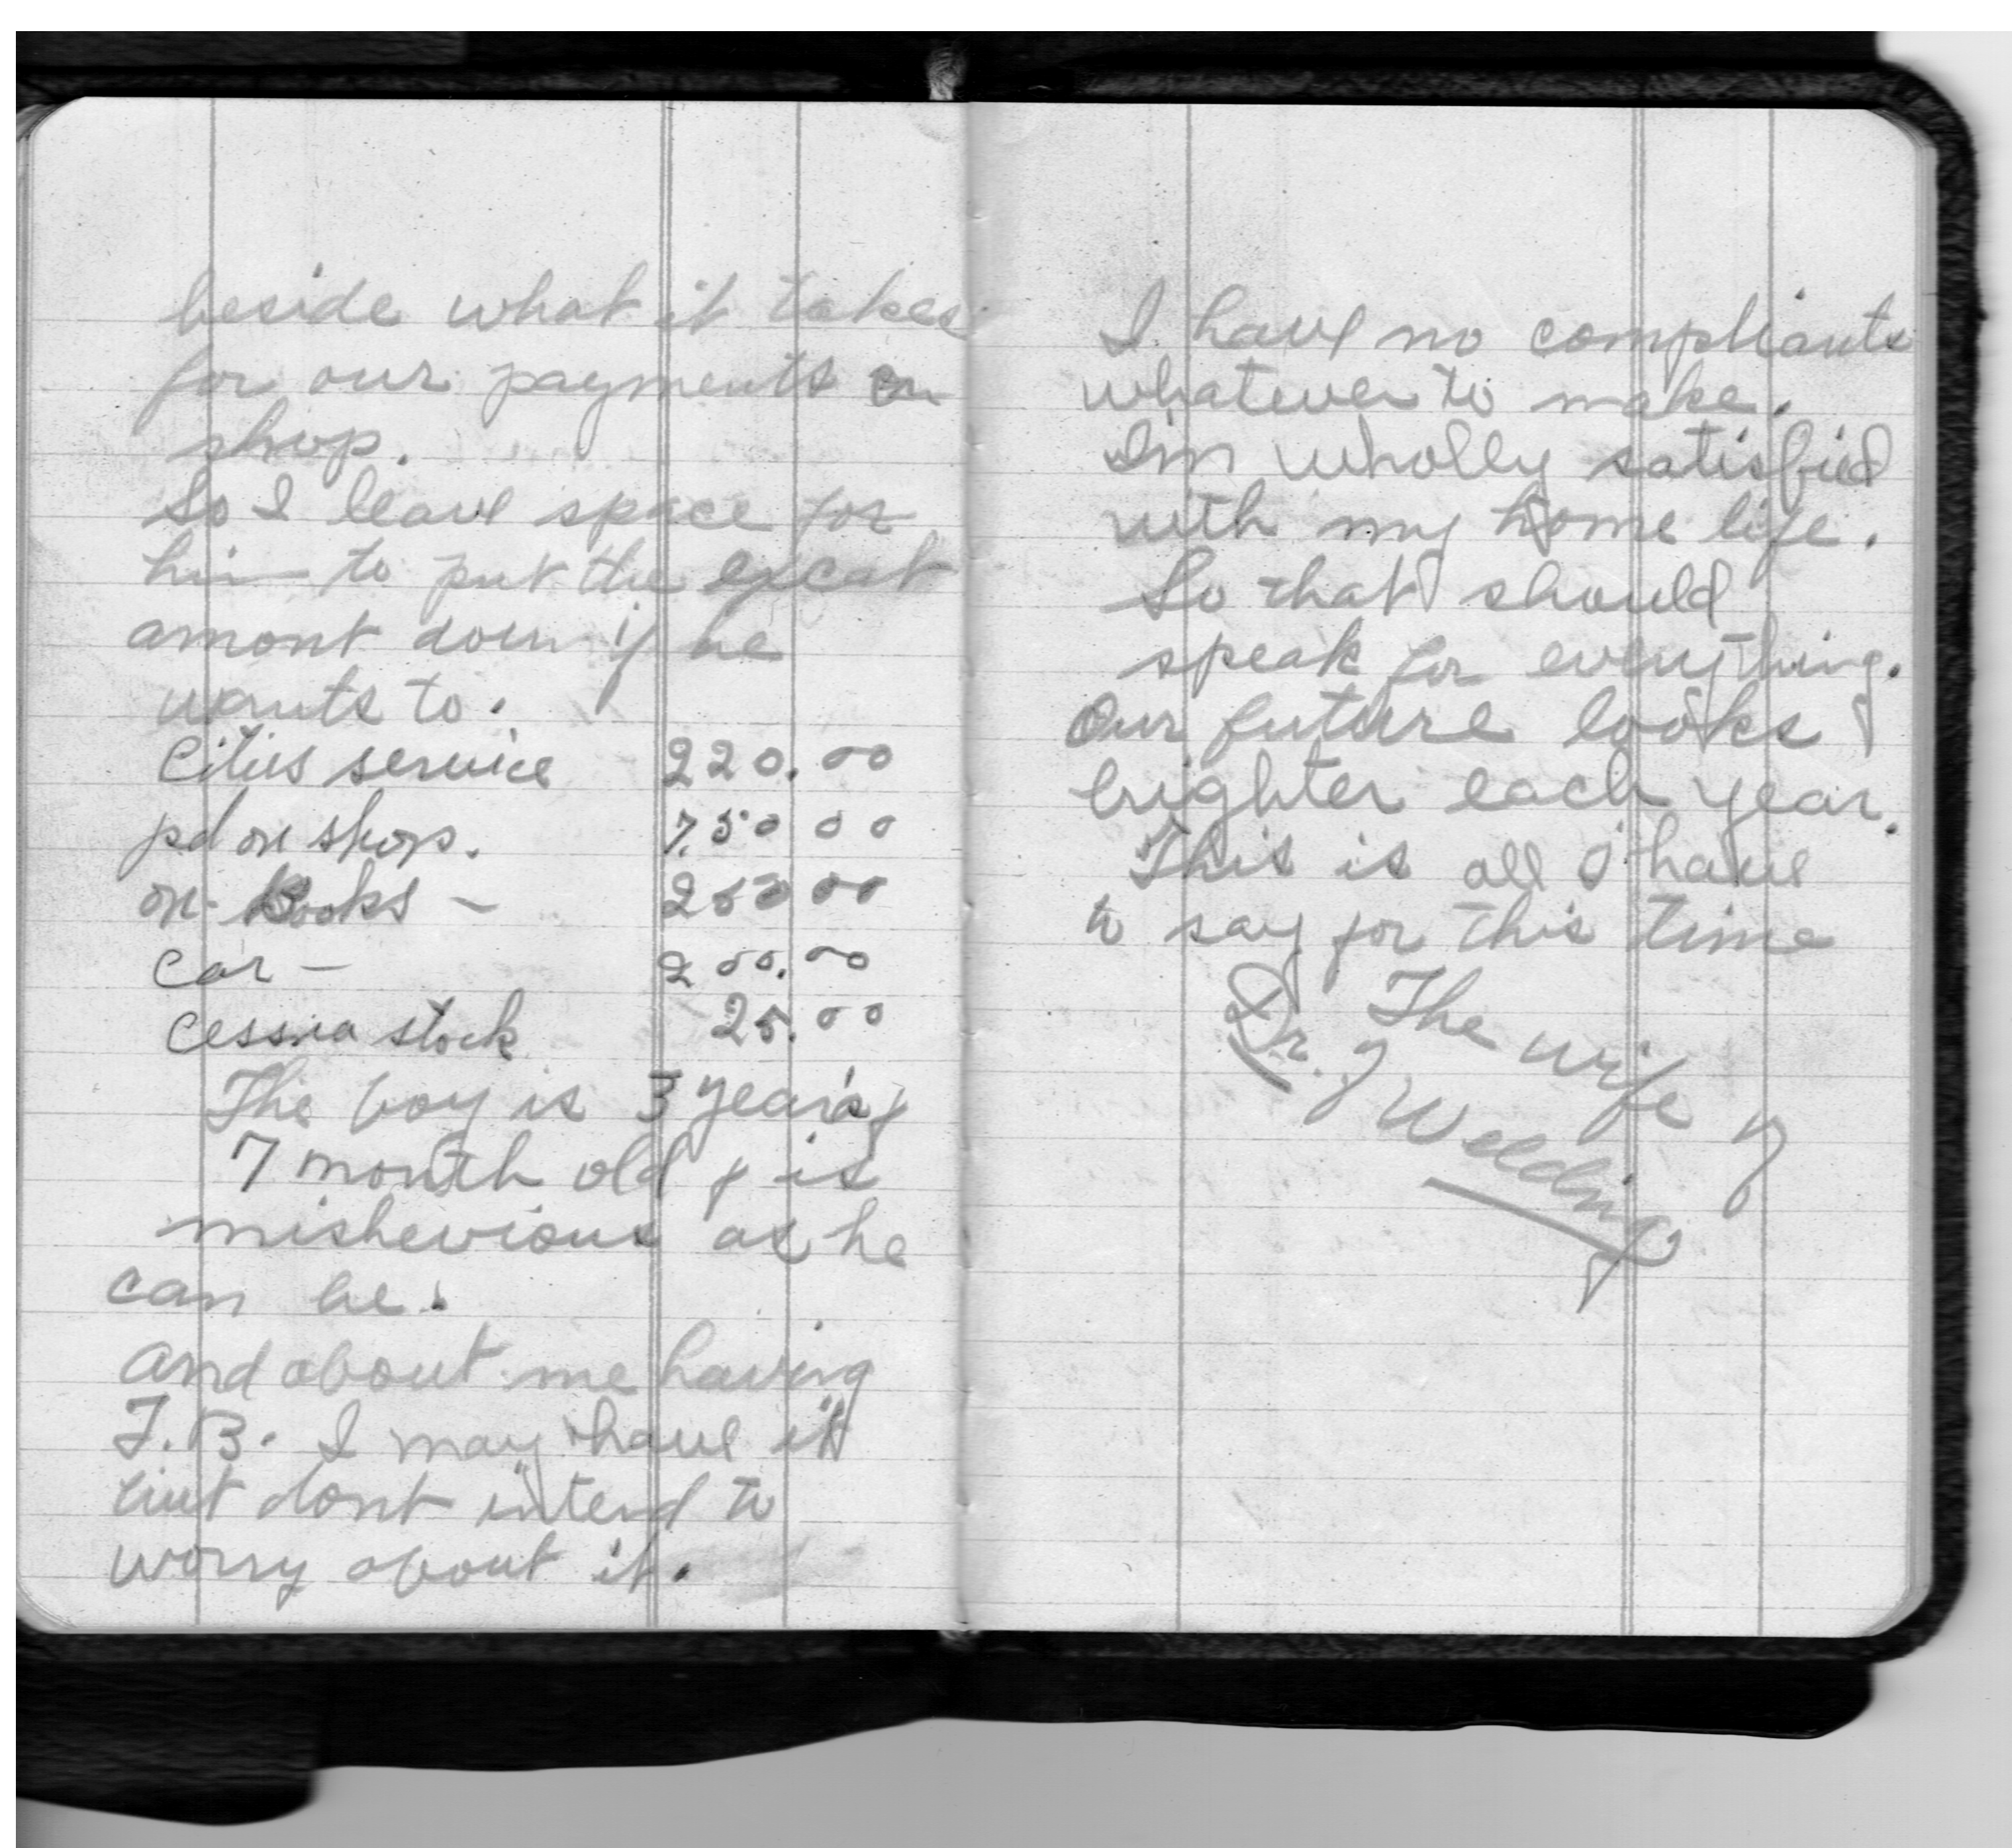 beside what it takes
for our payments on
shop.
So I leave space for
him to put the excat
amont down if he
wants to.
Cities service 220.00
pd on shop. 750 00
on Books - 250 00
Car - 200.00
Cessna stock 25.00
The boy is 3 years &
7 month old & is
mishevious as he
can be.
And about me having
T.B. I may have it
but dont intend to
worry about it.
I have no compliants
whatever to make.
I'm wholly satisfied
with my home life.
So that should
speak for everything.
Our future looks
brighter each year.
This is all I have
to say for this time
The wife of
Dr. of Welding